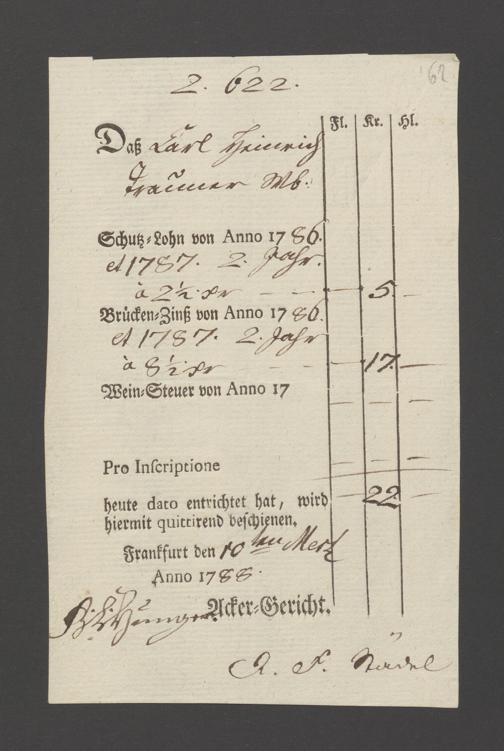 62
2. 622.
Fl. Kr. Hl.
Daß Carl Heinrich
Traumer Wb:
Schutz-Lohn von Anno 1786.
et 1787. 2. Jahr.
à 2½ xr — — 5. —
Brücken-Zinß von Anno 1786.
et 1787. 2. Jahr
à 8½ xr — 17. —
Wein-Steuer von Anno 17
Pro Inscriptione
22.
heute dato entrichtet hat, wird
hiermit quittirend beschienen,
Frankfurt den 10ten Mertz
Anno 1788.
Acker-Gericht.